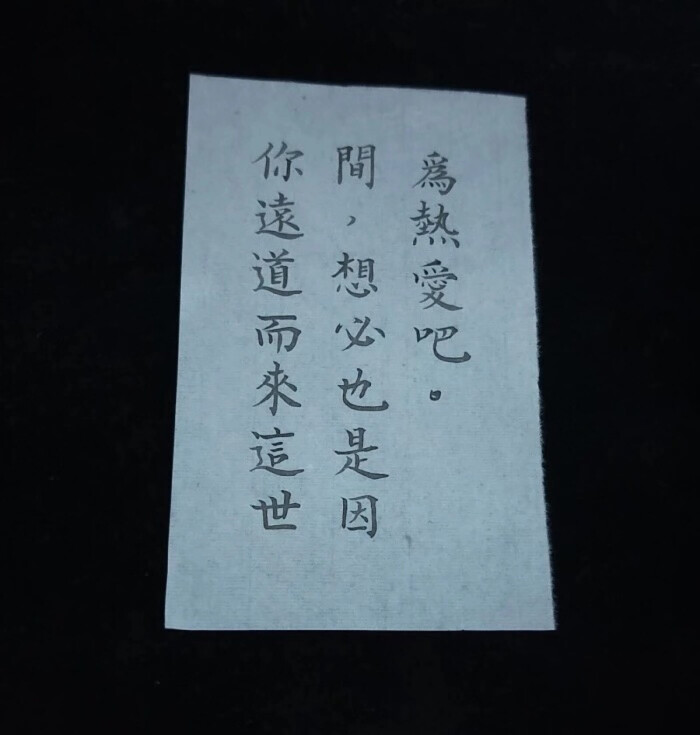 你遠道而來這世
間，想必也是因
爲熱愛吧。